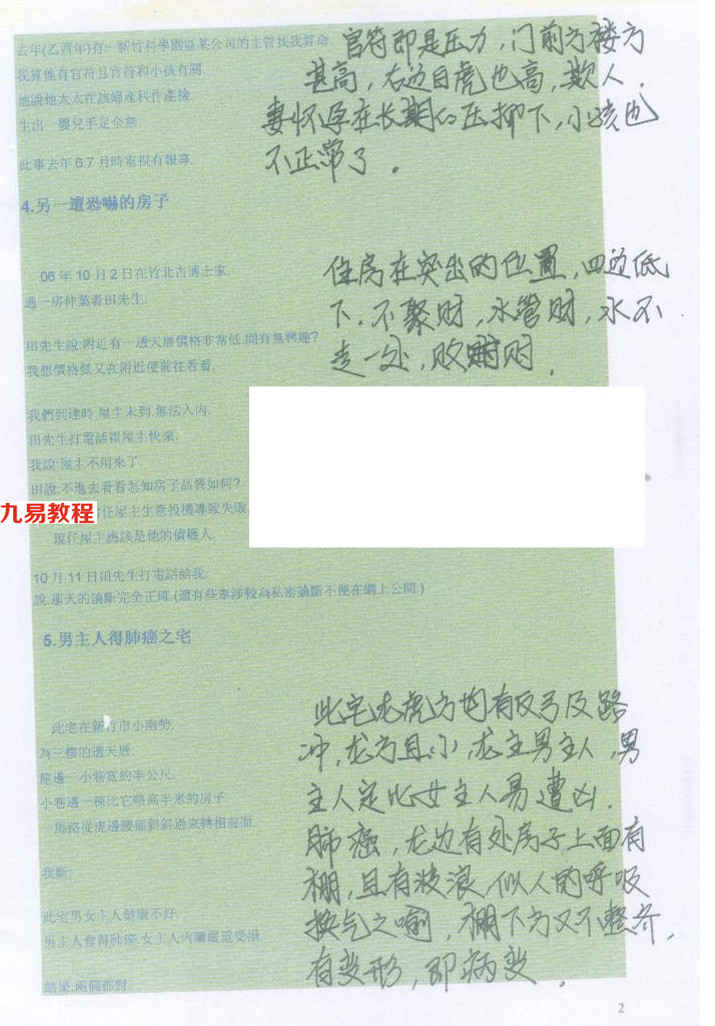 去年(乙酉年)有一新竹科學園區某公司的主管找我算命
我算他有官符且官符和小孩有關.
他說他太太在該婦產科作產檢.
生出一嬰兒手足全無
此事去年6.7月時電視有報導.
官符即是压力,门前方楼方
甚高,右边白虎也高,欺人.
妻怀孕在长期的压抑下,小孩也
不正常了.
4.另一遭恐嚇的房子
06年10月2日在竹北古博士家.
遇一房仲業者田先生.
田先生說:附近有一透天厝價格非常低,問有無興趣?
我想價格低又在附近便前往看看.
住房在突出的位置,四边低
下.不聚财,水管财,水不
走一处,败财.
我們到達時.屋主未到.無法入內.
田先生打電話催屋主快來.
我說:屋主不用來了
田說:不進去看看怎知房子品質如何?
任屋主生意投機導致失敗.
現任屋主應該是他的債權人.
九易教程
10月11日田先生打電話給我.
說.那天的論斷完全正確.(還有些牽涉較為私密論斷不便在網上公開.)
5.男主人得肺癌之宅
此宅在新竹市小南勢.
為三樓的透天厝.
龍邊一小巷寬約半公尺.
小巷邊一棟比它略高半米的房子
馬路從虎邊腰
我斷:
此宅男女主人健康不好.
男主人會得肺癌.女主人內臟嚴重受損.
結果:兩個都對.
此宅龙虎方均有反弓及路
冲,龙方且小,龙主男主人,男
主人定比女主人易遭凶.
肺癌,龙边有处房子上面有
棚,且有波浪,似人的呼吸
换气之喻,棚下方又不整齐,
有变形,即病变.
2